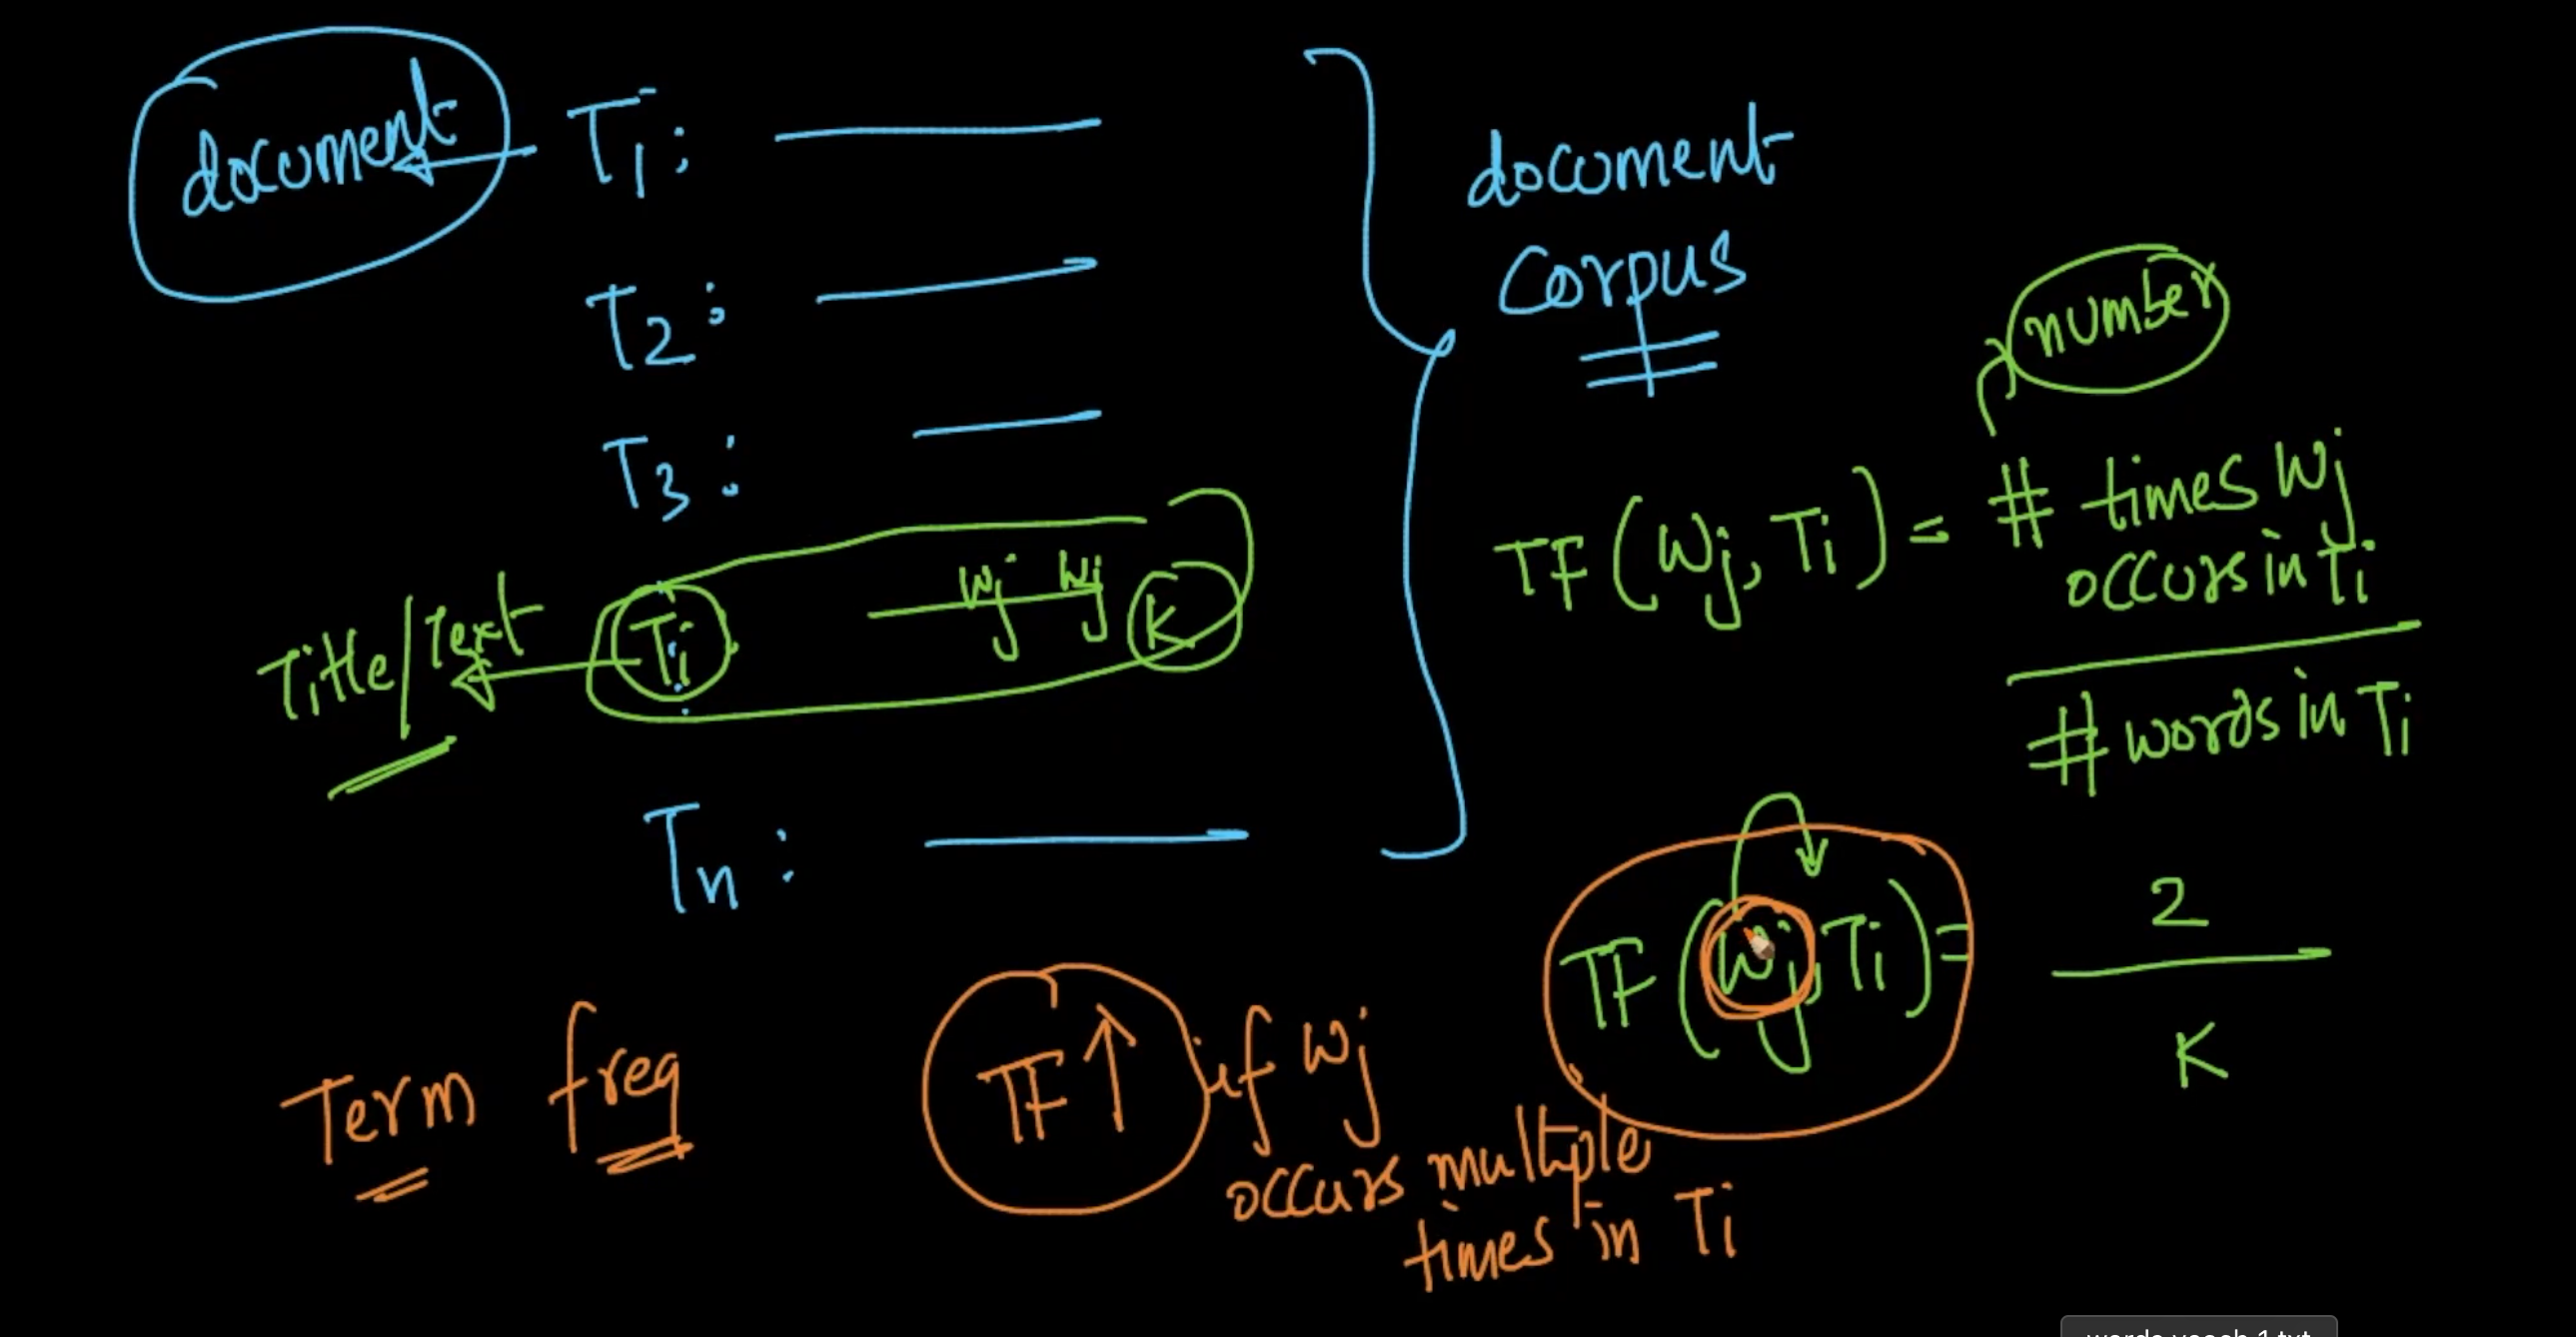 document
T1 :
T2 :
T3 :
Title/Text
Ti
wj wj
K
Tn :
document
corpus
number
TF(wj, Ti) = # times wj
occurs in Ti
# words in Ti
TF(wj, Ti) = 2
K
Term freq
TF↑ if wj
occurs multiple
times in Ti